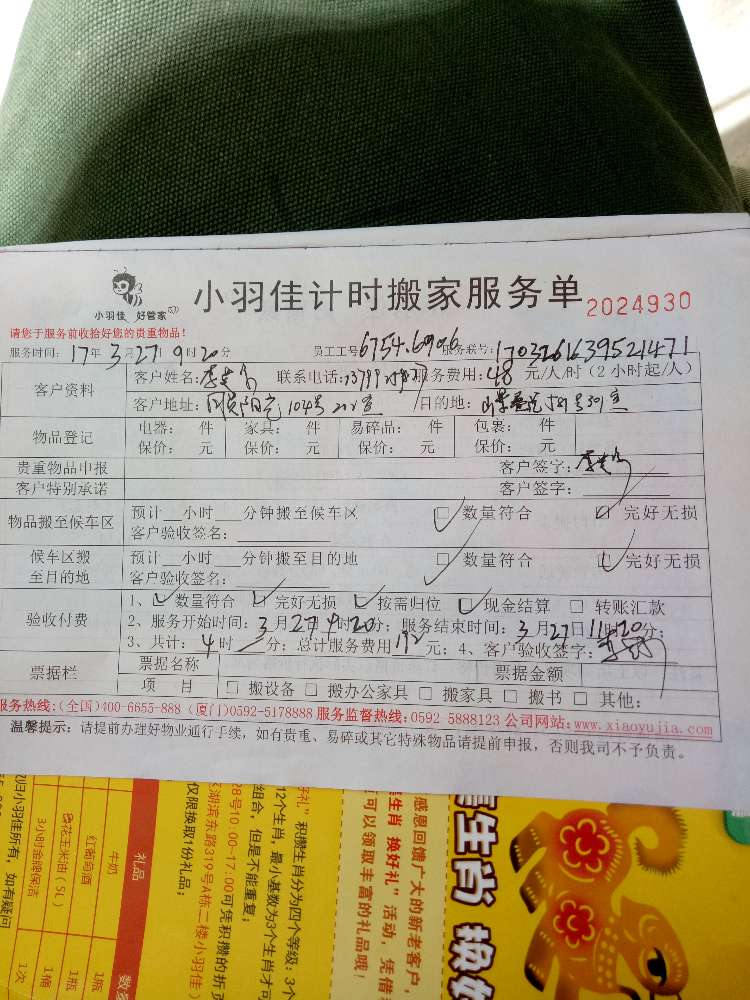 小羽佳 好管家
小羽佳计时搬家服务单 2024930
请您于服务前收拾好您的贵重物品！
服务时间: 17年 3月 27日 9时 20分 员工工号 6754.6906 服务联号: 1703261639521471
客户资料 客户姓名: 联系电话: 13799 服务费用: 48 元/人/时 (2 小时起/人)
客户地址: 阳光 104号 室 目的地: 号 301室
物品登记 电器: 件 家具: 件 易碎品: 件 包裹: 件
保价: 元 保价: 元 保价: 元 保价: 元
贵重物品申报 客户签字:
客户特别承诺 客户签字:
物品搬至候车区 预计 小时 分钟搬至候车区 数量符合 完好无损
客户验收签名:
候车区搬至目的地 预计 小时 分钟搬至目的地 数量符合 完好无损
客户验收签名:
验收付费 1、 数量符合 完好无损 按需归位 现金结算 转账汇款
2、服务开始时间: 3月 27日 9时 20分; 服务结束时间: 3月 27日 11时 20分;
3、共计: 4时 分; 总计服务费用 192 元; 4、客户验收签字:
票据栏 票据名称 票据金额
项 目 搬设备 搬办公家具 搬家具 搬书 其他:
服务热线:(全国)400-6655-888 (厦门)0592-5178888 服务监督热线:0592-5888123 公司网站:www.xiaoyujia.com
温馨提示: 请提前办理好物业通行手续, 如有贵重、易碎或其它特殊物品请提前申报, 否则我司不予负责。
生肖 换好
感恩回馈广大的新老客户,
生肖 换好礼”活动, 凭借
可以领取丰富的礼品哦!
礼”积攒生肖分为四个等级: 3个
12个生肖, 最小基数为3个生肖才可
组合, 但是不能重复;
28号10:00-17:00可凭积攒的折页
湖滨东路319号A栋二楼小羽佳)
仅限换取1份礼品;
礼品 数
牛奶 1瓶
红葡萄酒 1瓶
花玉米油(5L) 1桶
3小时金牌保洁 1次
归小羽佳所有, 如有疑问